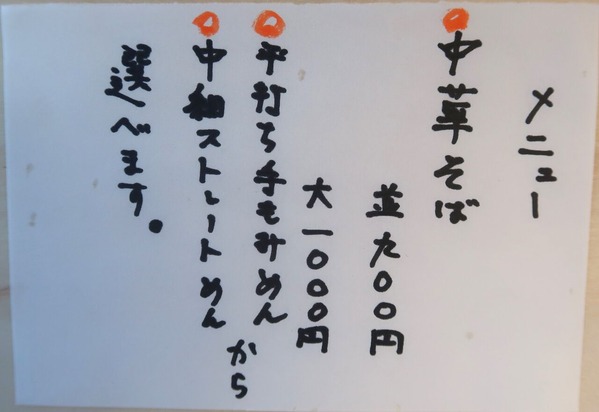 メニュー
中華そば
並 九〇〇円
大 一〇〇〇円
平打ち手もみめん
中細ストレートめん
から
選べます。